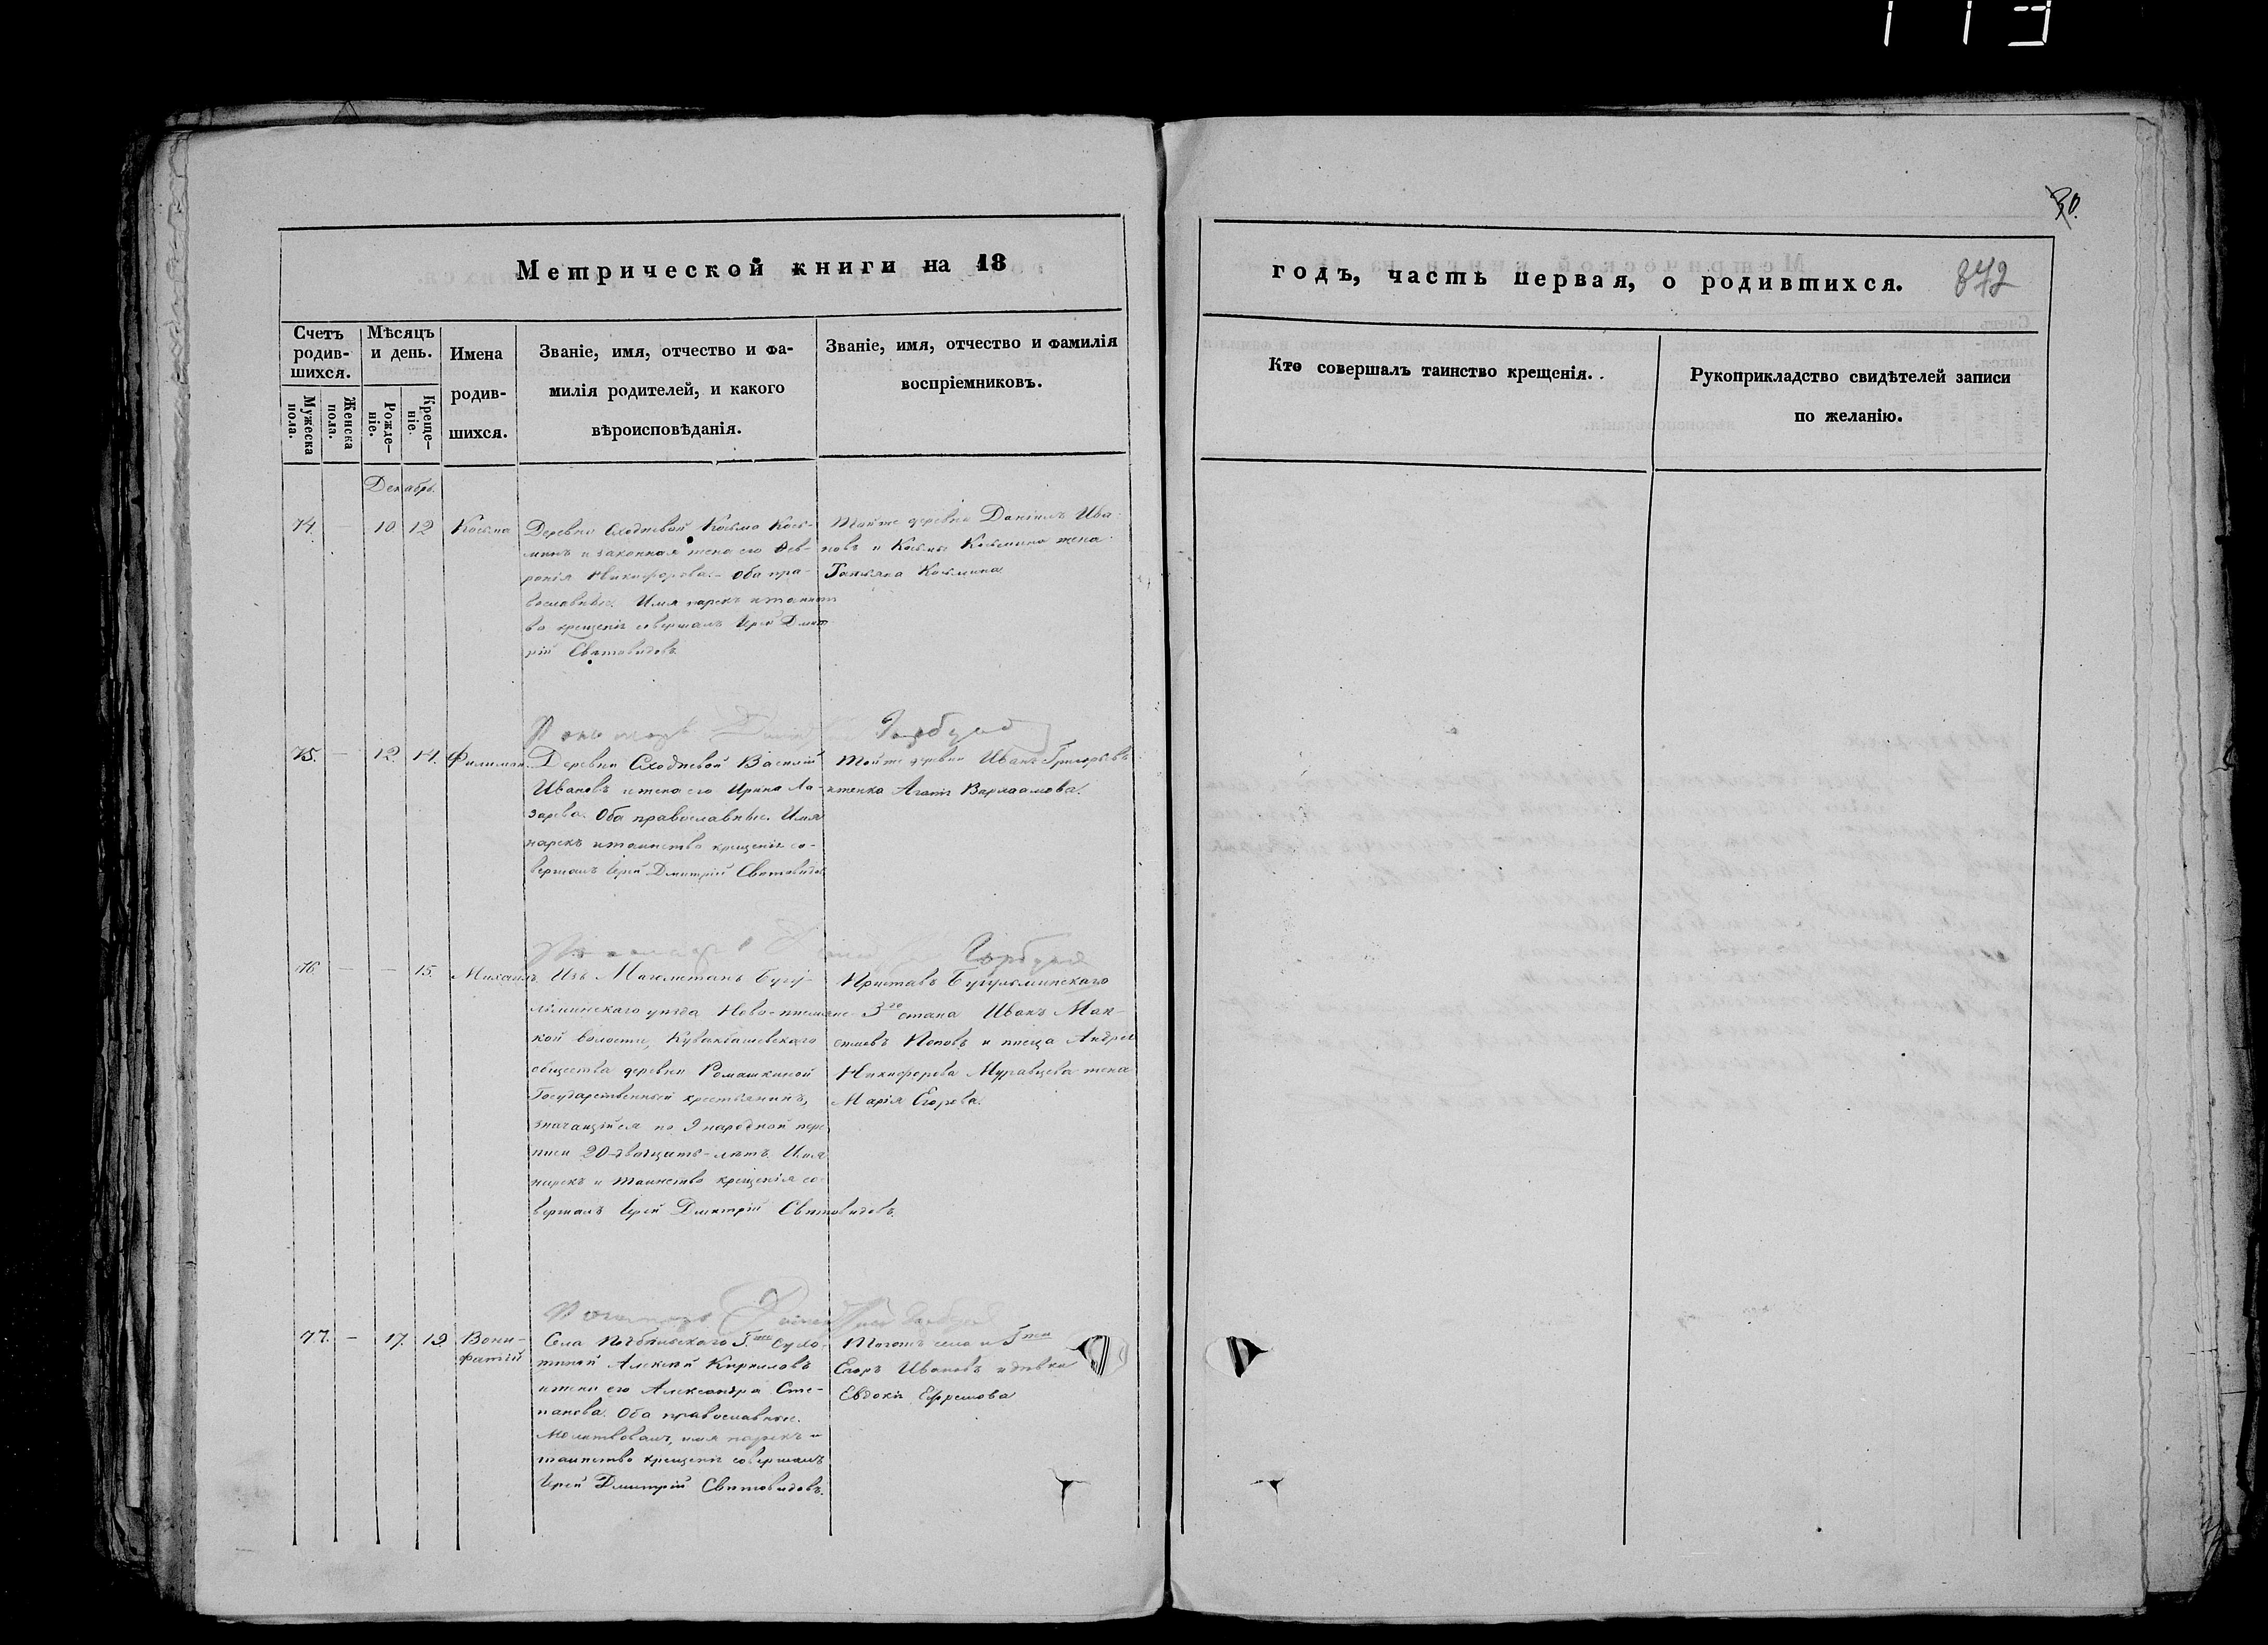 113
30.
Метрической книги на 18
годъ, часть первая, о родившихся.
872
Счетъ родив-шихся.
Мужеска пола.
Женска пола.
Мѣсяцъ и день.
Рожде-ніе.
Креще-ніе.
Имена
родив-
шихся.
Званіе, имя, отчество и фа-
милія родителей, и какого
вѣроисповѣданія.
Званіе, имя, отчество и фамилія
воспріемниковъ.
Кто совершалъ таинство крещенія.
Рукоприкладство свидѣтелей записи
по желанію.
Декабрь.
74. — 10 12 Косьма
Деревни Сходневой Косьма Кось-
минъ и законная жена его Фев-
ронія Никифорова. Оба пра-
вославные. Имя нарекъ и таинст
во крещенія совершалъ Іерей Дмит
рій Святовидовъ
Тойже деревни Даніилъ Ива-
новъ и Косьмы Косьмина жена
Татьяна Косьмина.
75. — 12. 14. Филимон.
Деревни Сходневой Василій
Ивановъ и жена его Ирина Ла-
зарева. Оба православные. Имя
нарекъ и таинство крещенія со-
вершалъ Іерей Дмитрій Святовидов
Тойже деревни Иванъ Григорьевъ
и женка Агапія Варлаамова.
76. — — 15. Михаилъ.
Изъ Магометанъ Бугу-
льминскаго уѣзда Ново-письмянс-
кой волости, Кувакбашевскаго
общества деревни Ромашкиной
Государственный крестьянинъ,
значащійся по 9 народной пере
писи 20-двадцать-лѣтъ. Имя
нарекъ и таинство крещенія со-
вершалъ Іерей Дмитрій Святовидовъ.
Приставъ Бугульминскаго
3го стана Иванъ
Поповъ и писца Андрея
Никифорова Муравцева жена
Марія Егорова.
77. — 17. 19. Вони-
фатій
Села
Алексѣй Кирилловъ
и жена его Александра Сте-
панова. Оба православные.
Молитвовалъ, имя нарекъ и
таинство крещенія совершалъ
Іерей Дмитрій Святовидовъ.
Тогожъ села и Гжи
Егоръ Ивановъ и дѣвка
Евдокія Ефремова